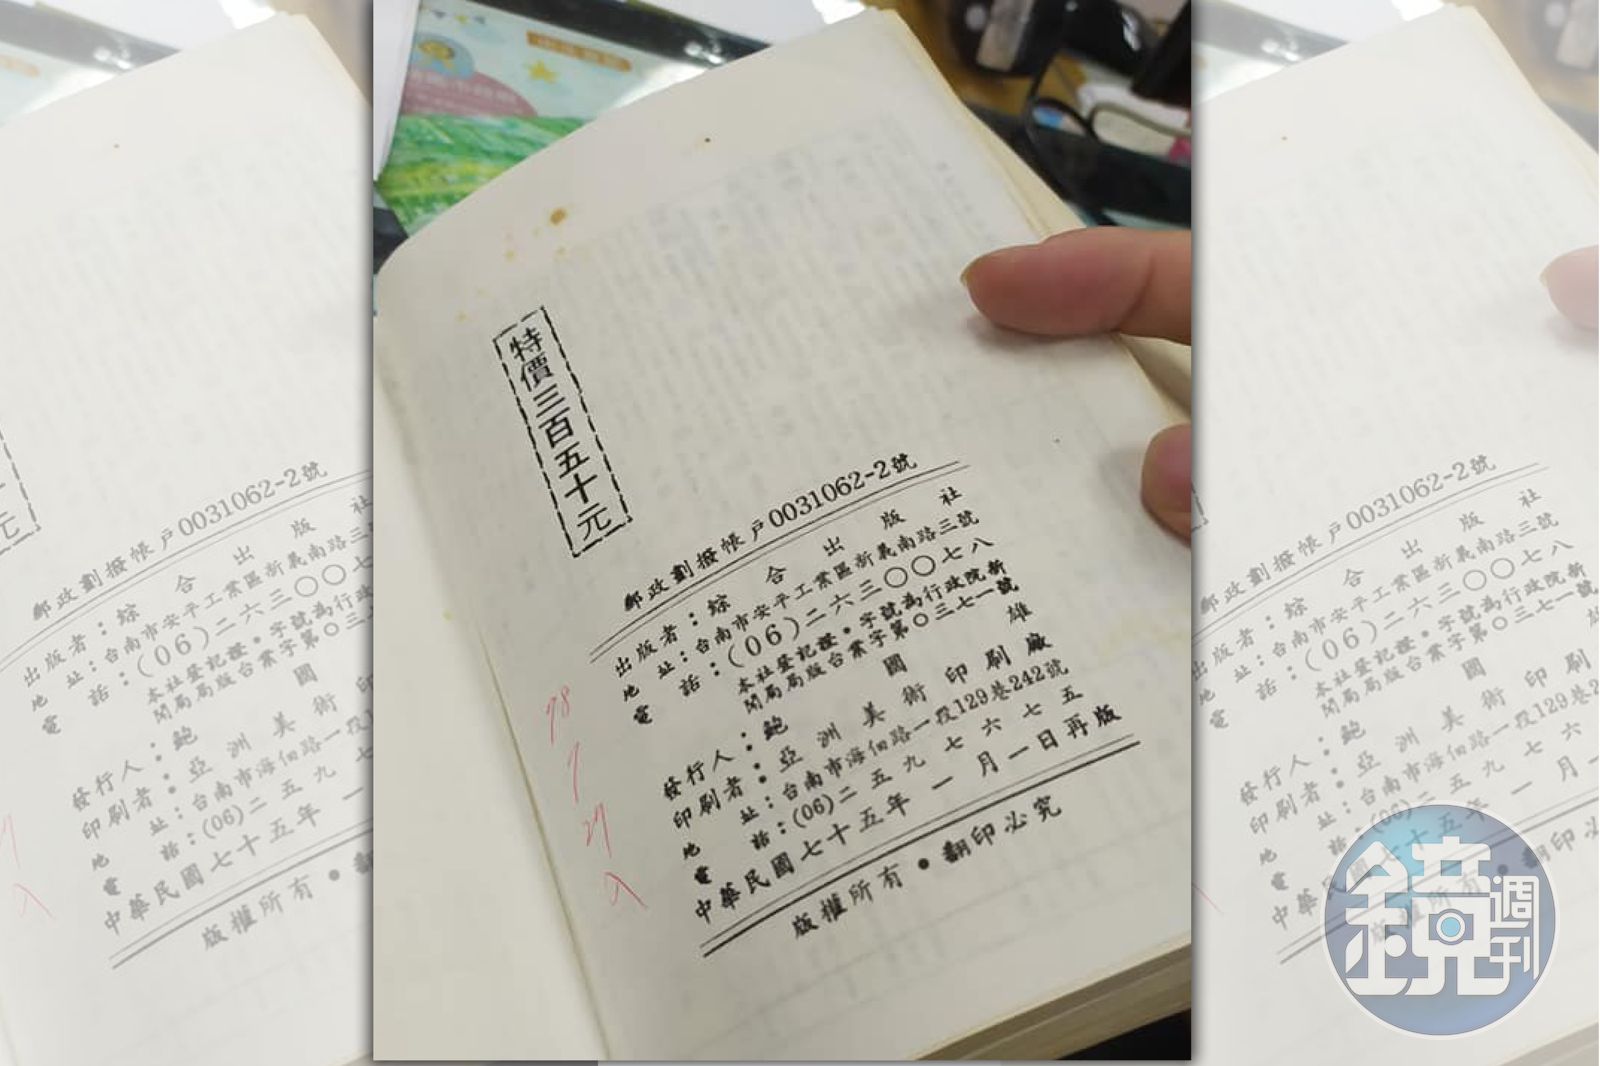 特價三百五十元
郵政劃撥帳戶0031062-2號
出版者：綜合出版社
地址：台南市安平工業區新義南路三號
電話：(06)二六三〇〇七八
本社登記證•字號為行政院新
聞局局版台業字第〇三七一號
發行人：鮑國雄
印刷者：亞洲美術印刷廠
地址：台南市海佃路一段129巷242號
電話：(06)二五九七六七五
中華民國七十五年一月一日再版
版權所有•翻印必究
鏡週刊